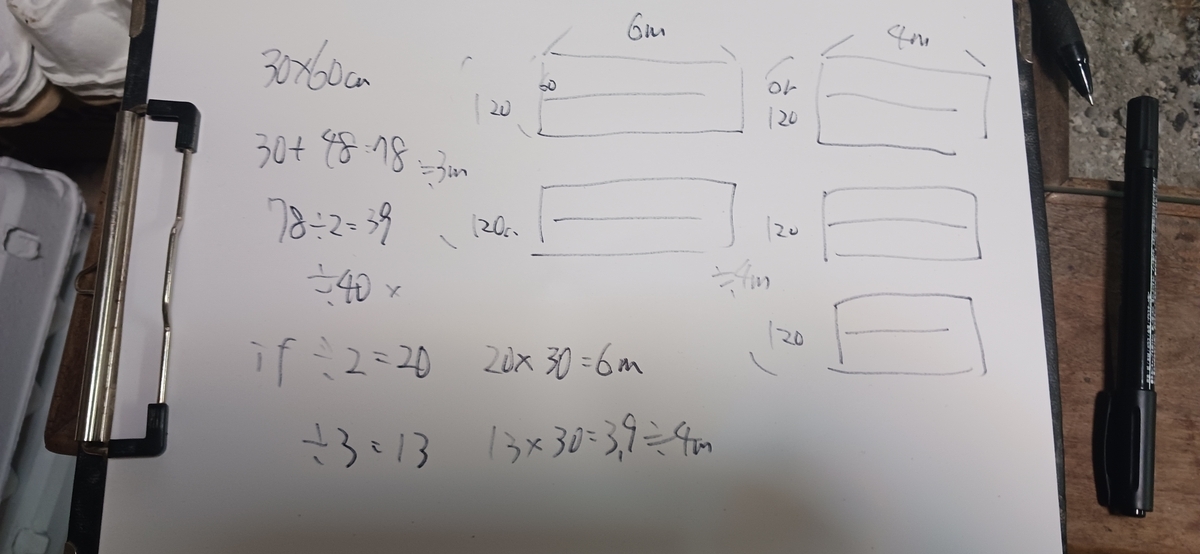 30×60cm
30+48=78 ÷3m
78÷2=39
÷40 ×
if ÷2=20 20×30=6m
÷3=13 13×30=3,9÷4m
6m
60
120
120cm
÷4m
4m
or
120
120
120